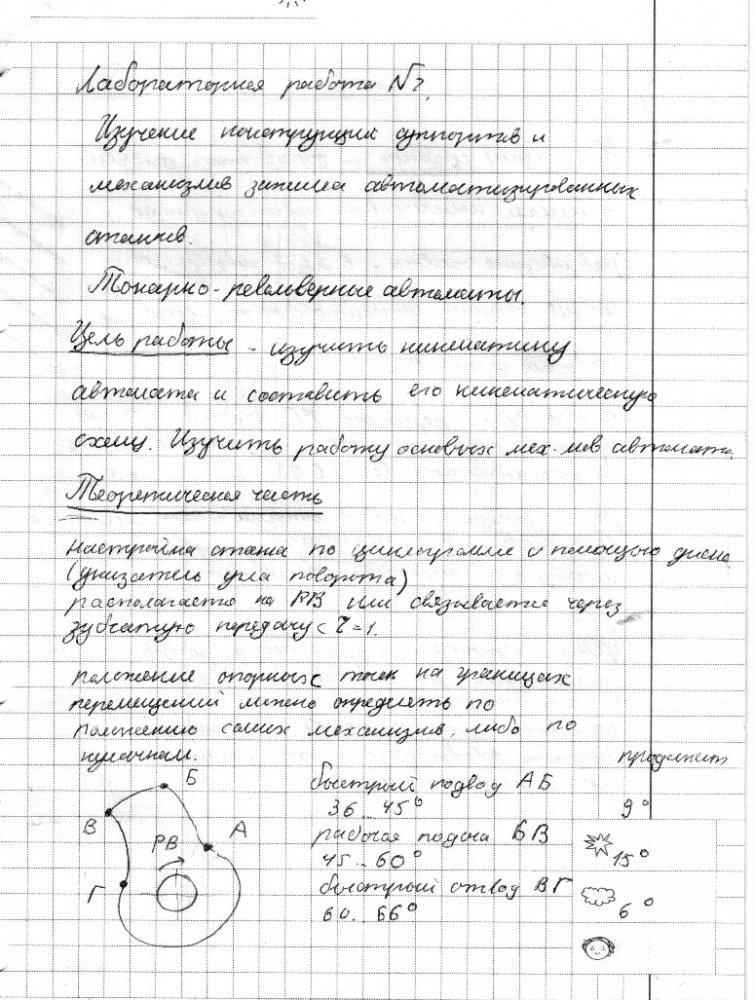 Лабораторная работа N2.
Изучение конструкций суппортов и
механизмов зажима автоматизированных
станков.
Токарно-револьверные автоматы.
Цель работы - изучить кинематику
автомата и составить его кинематическую
схему. Изучить работу основных мех-мов автомата.
Теоретическая часть
настройка станка по циклограмме с помощью диска
(указатель угла поворота)
располагается на РВ или связывается через
зубчатую передачу с τ=1.
положение опорных точек на границах
перемещений можно определять по
положению самих механизмов, либо по
кулачкам.
продолжит
быстрый подвод АБ
36..45° 9°
рабочая подача БВ
45..60° 15°
быстрый отвод ВГ
60..66° 6°
Б
В
РВ
А
Г